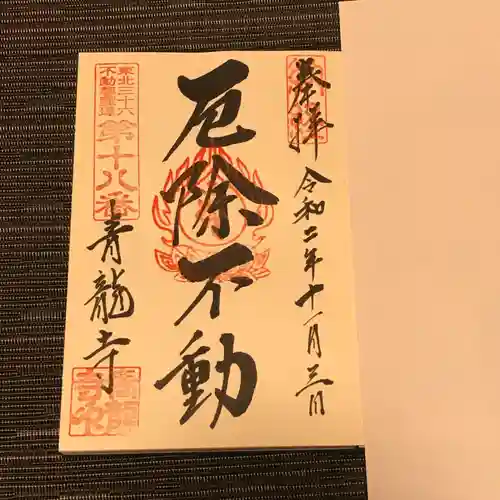 奉拝
令和二年十一月三日
厄除不動
東北三十六
不動尊霊場
第十八番
青龍寺